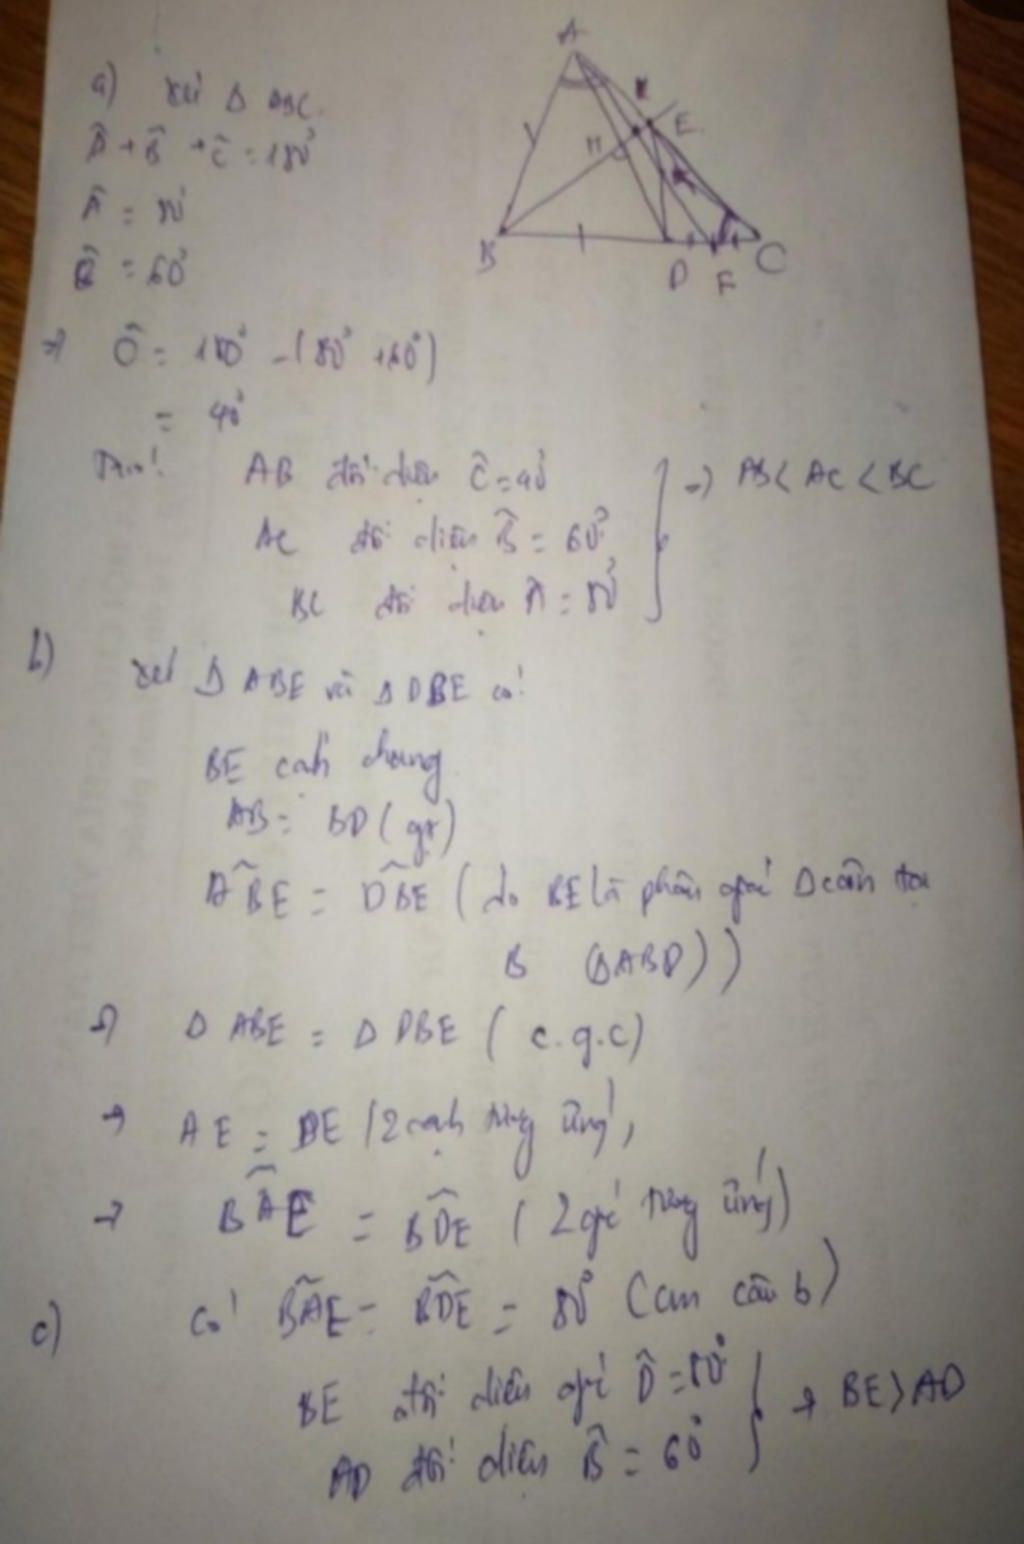 A
K
E
H
B
D
F
C
a) Xét Δ ABC
Â + B̂ + Ĉ = 180°
Â = 80°
B̂ = 60°
=> Ĉ = 180° - (80° + 60°)
= 40°
AB đối diện Ĉ = 40°
AC đối diện B̂ = 60°
BC đối diện Â = 80°
=> AB < AC < BC
b)
Xét Δ ABE và Δ DBE có:
BE cạnh chung
AB = BD (gt)
ABE = DBE (do BE là phân giác Δ cân tại
B (ΔABD))
=> Δ ABE = Δ DBE (c.g.c)
→ AE = DE (2 cạnh tương ứng)
→ BAE = BDE (2 góc tương ứng)
c) Có BAE = BDE = 80° (câu b)
BE đối diện góc D̂ = 80°
AD đối diện B̂ = 60°
→ BE > AD